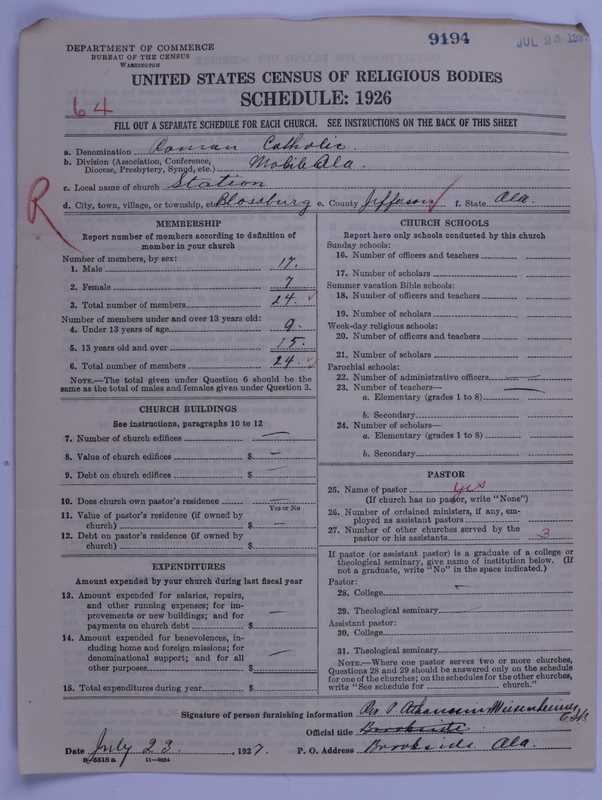 9194
JUL 25 1927
DEPARTMENT OF COMMERCE
BUREAU OF THE CENSUS
WASHINGTON
UNITED STATES CENSUS OF RELIGIOUS BODIES
SCHEDULE: 1926
64
FILL OUT A SEPARATE SCHEDULE FOR EACH CHURCH. SEE INSTRUCTIONS ON THE BACK OF THIS SHEET
a. Denomination Roman Catholic
b. Division (Association, Conference,
Diocese, Presbytery, Synod, etc.) Mobile Ala.
c. Local name of church Station
d. City, town, village, or township, etc. Blossburg e. County Jefferson f. State Ala.
R
MEMBERSHIP
Report number of members according to definition of
member in your church
Number of members, by sex:
1. Male 17.
2. Female 7
3. Total number of members 24.
Number of members under and over 13 years old:
4. Under 13 years of age 9.
5. 13 years old and over 15.
6. Total number of members 24.
NOTE.—The total given under Question 6 should be the
same as the total of males and females given under Question 3.
CHURCH BUILDINGS
See instructions, paragraphs 10 to 12
7. Number of church edifices —
8. Value of church edifices $ —
9. Debt on church edifices $ —
10. Does church own pastor's residence —
Yes or No
11. Value of pastor's residence (if owned by
church) $ —
12. Debt on pastor's residence (if owned by
church) $
EXPENDITURES
Amount expended by your church during last fiscal year
13. Amount expended for salaries, repairs,
and other running expenses; for im-
provements or new buildings; and for
payments on church debt $ —
14. Amount expended for benevolences, in-
cluding home and foreign missions; for
denominational support; and for all
other purposes $ —
15. Total expenditures during year $
CHURCH SCHOOLS
Report here only schools conducted by this church
Sunday schools:
16. Number of officers and teachers
17. Number of scholars
Summer vacation Bible schools:
18. Number of officers and teachers
19. Number of scholars
Week-day religious schools:
20. Number of officers and teachers
21. Number of scholars
Parochial schools:
22. Number of administrative officers —
23. Number of teachers— —
a. Elementary (grades 1 to 8)
b. Secondary
24. Number of scholars—
a. Elementary (grades 1 to 8)
b. Secondary
PASTOR
25. Name of pastor yes
(If church has no pastor, write "None")
26. Number of ordained ministers, if any, em-
ployed as assistant pastors
27. Number of other churches served by the
pastor or his assistants 3
If pastor (or assistant pastor) is a graduate of a college or
theological seminary, give name of institution below. (If
not a graduate, write "No" in the space indicated.)
Pastor:
28. College —
29. Theological seminary —
Assistant pastor:
30. College
31. Theological seminary
NOTE.—Where one pastor serves two or more churches,
Questions 28 and 29 should be answered only on the schedule
for one of the churches; on the schedules for the other churches,
write "See schedule for church."
Signature of person furnishing information P. Athanasius
Official title Brookside
Date July 23, 1927. P. O. Address Brookside Ala.
8-5518 a 11-9684